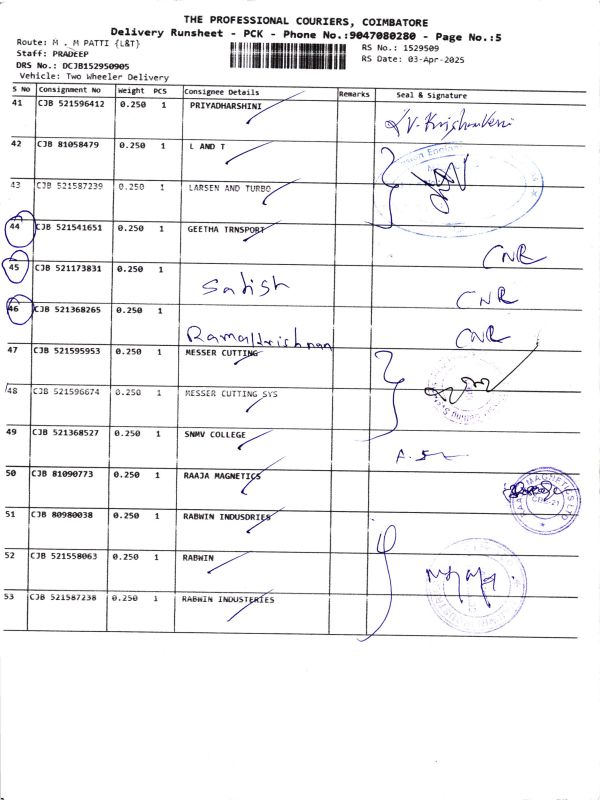 THE PROFESSIONAL COURIERS, COIMBATORE
Delivery Runsheet - PCK - Phone No.:9047080280 - Page No.:5
Route: M . M PATTI {L&T}
RS No.: 1529509
Staff: PRADEEP
RS Date: 03-Apr-2025
DRS No.: DCJB152950905
Vehicle: Two Wheeler Delivery
S No Consignment No Weight PCS Consignee Details Remarks Seal & Signature
41 CJB 521596412 0.250 1 PRIYADHARSHINI
V. Krishnaveni
42 CJB 81058479 0.250 1 L AND T
43 CJB 521587239 0.250 1 LARSEN AND TURBO
44 CJB 521541651 0.250 1 GEETHA TRNSPORT
CNR
45 CJB 521173831 0.250 1
Satish
CNR
46 CJB 521368265 0.250 1
Ramakrishnan
CNR
47 CJB 521595953 0.250 1 MESSER CUTTING
48 CJB 521596674 0.250 1 MESSER CUTTING SYS
49 CJB 521368527 0.250 1 SNMV COLLEGE
50 CJB 81090773 0.250 1 RAAJA MAGNETICS
RAAJA MAGNETICS LTD
51 CJB 80980038 0.250 1 RABWIN INDUSDRIES
52 CJB 521558063 0.250 1 RABWIN
53 CJB 521587238 0.250 1 RABWIN INDUSTERIES